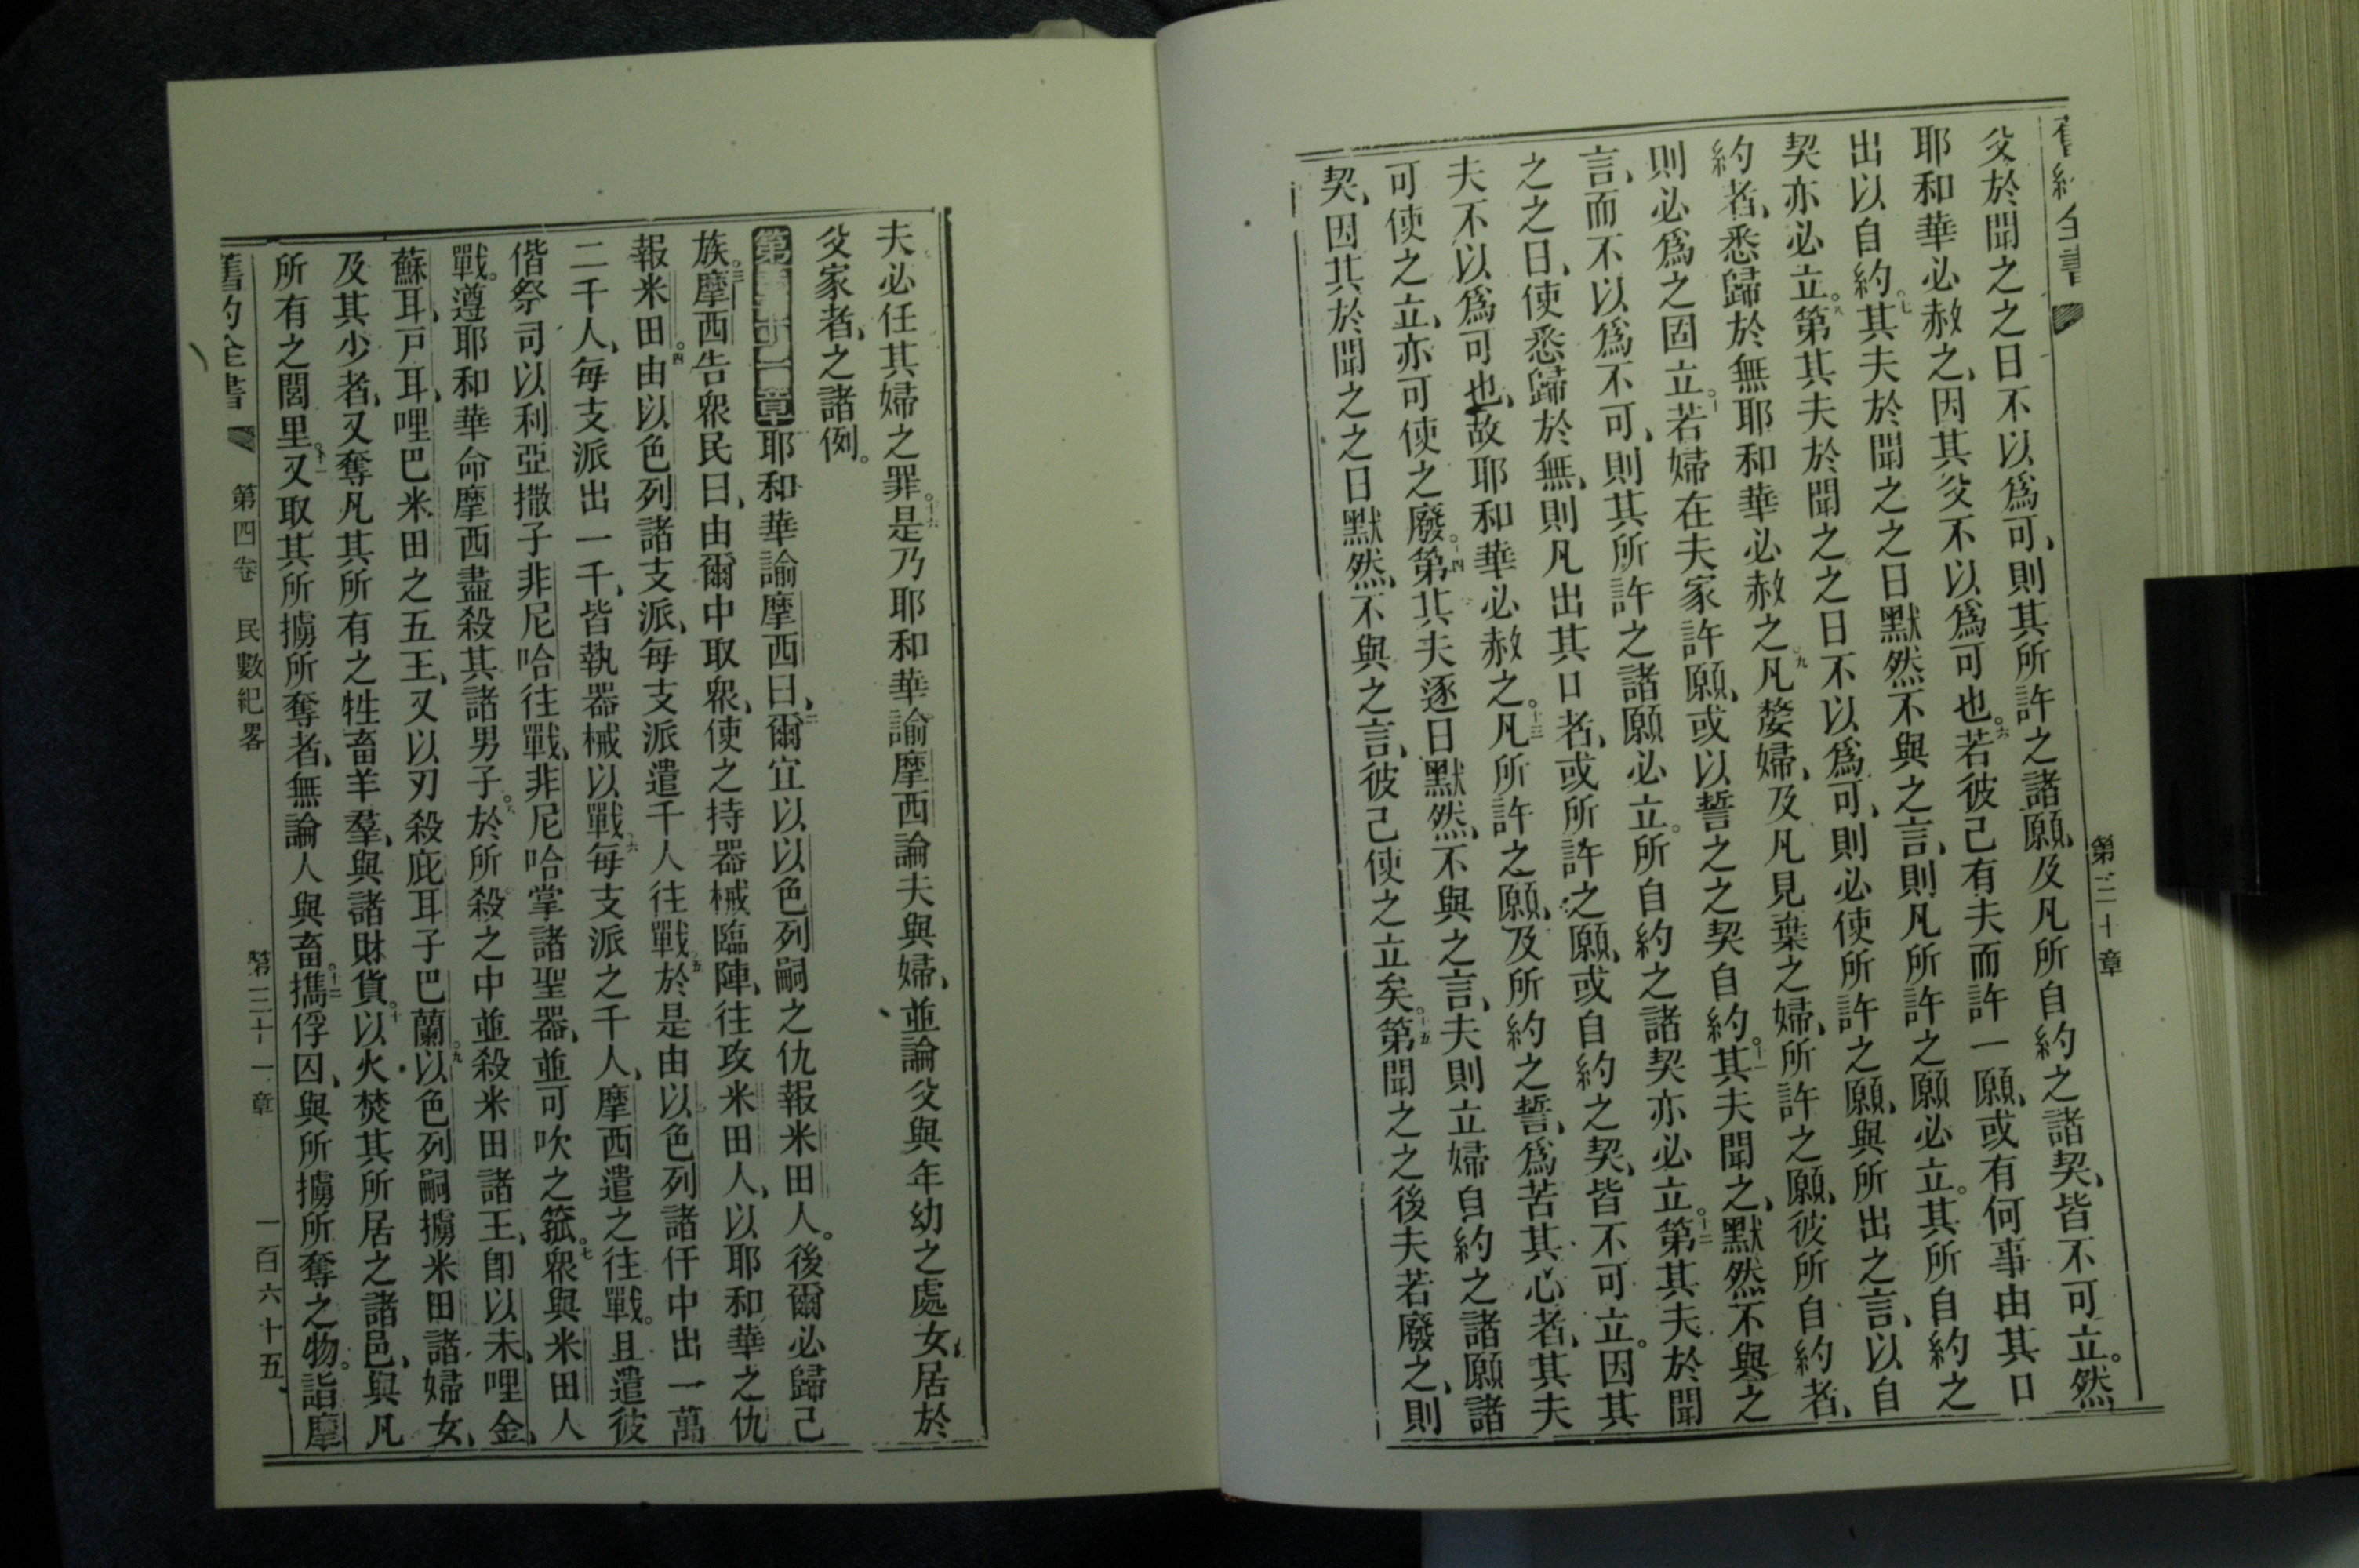 舊約全書 第三十章
父於聞之之日不以爲可、則其所許之諸願、及凡所自約之諸契、皆不可立。然
耶和華必赦之、因其父不以爲可也。六若彼己有夫而許一願、或有何事由其口
出以自約。七其夫於聞之之日默然不與之言、則凡所許之願必立。其所自約之
契亦必立。八第其夫於聞之之日不以爲可、則必使所許之願、與所出之言、以自
約者、悉歸於無耶和華必赦之。九凡嫠婦、及凡見棄之婦、所許之願、彼所自約者、
則必爲之固立。十若婦在夫家許願、或以誓之之契自約。十一其夫聞之、默然不與之
言、而不以爲不可、則其所許之諸願必立。所自約之諸契亦必立。十二第其夫於聞
之之日、使悉歸於無、則凡出其口者、或所許之願、或自約之契、皆不可立。因其
夫不以爲可也、故耶和華必赦之。十三凡所許之願、及所約之誓、爲苦其心者、其夫
可使之立、亦可使之廢。十四第其夫逐日默然、不與之言、夫則立婦自約之諸願諸
契、因其於聞之之日默然、不與之言、彼己使之立矣。十五第聞之之後夫若廢之、則
夫必任其婦之罪。十六是乃耶和華諭摩西論夫與婦、並論父與年幼之處女、居於
父家者、之諸例。
第三十一章耶和華諭摩西曰、二爾宜以以色列嗣之仇報米田人。後爾必歸己
族。三摩西告衆民曰、由爾中取衆、使之持器械臨陣、往攻米田人、以耶和華之仇
報米田。四由以色列諸支派、每支派遣千人往戰。五於是由以色列諸仟中出一萬
二千人、每支派出一千、皆執器械以戰。六每支派之千人、摩西遣之往戰。且遣彼
偕祭司以利亞撒子非尼哈往戰、非尼哈掌諸聖器、並可吹之箛。七衆與米田人
戰。遵耶和華命摩西盡殺其諸男子。八於所殺之中並殺米田諸王、卽以未、哩金、
蘇耳、戶耳、哩巴米田之五王、又以刃殺庇耳子巴蘭。九以色列嗣擄米田諸婦女、
及其少者、又奪凡其所有之牲畜羊羣、與諸財貨。十以火焚其所居之諸邑、與凡
所有之閭里。十一又取其所擄所奪者、無論人與畜。十二攜俘囚、與所擄所奪之物。詣摩
舊約全書 第四卷 民數紀畧 第三十一章 一百六十五